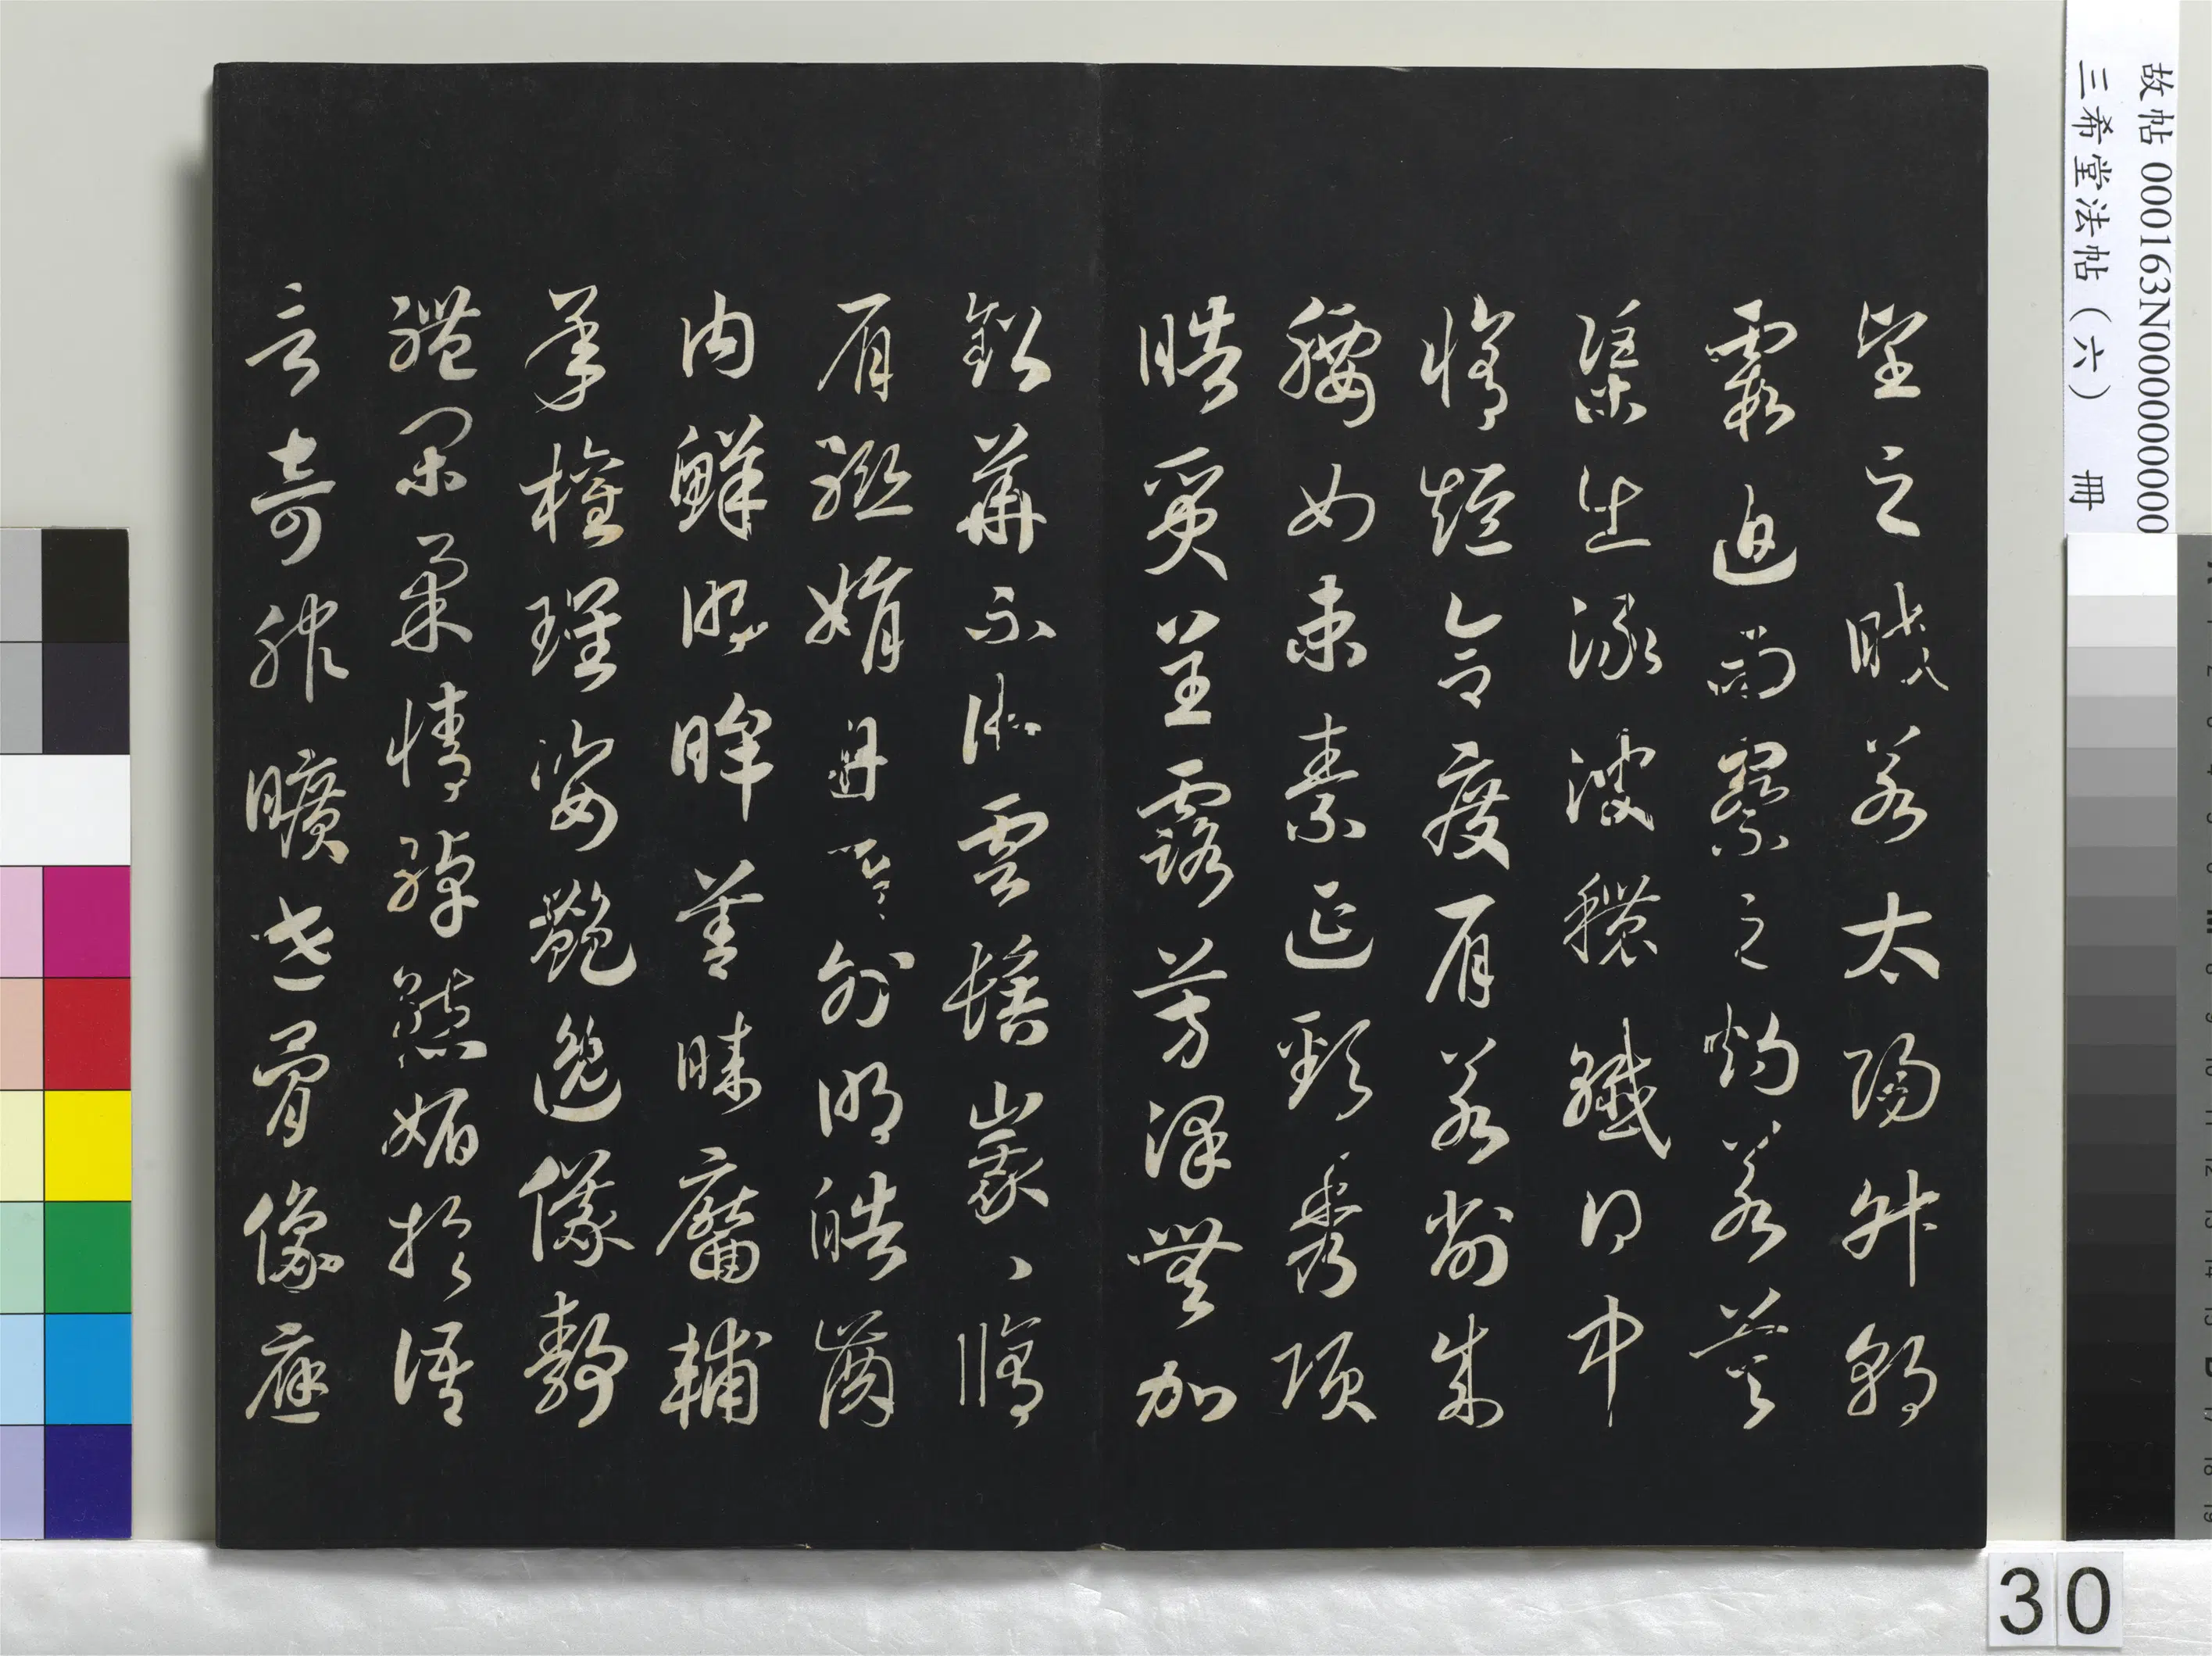 望之皎若太陽升朝
霞迫而察之灼若芙
渠出淥波穠纖得中
脩短合度肩若削成
腰如束素延頸秀項
皓質呈露芳澤無加
鉛華不御雲髻峩〻脩
眉聯娟丹脣外朗皓齒
內鮮明眸善睞靨輔
承權瓌姿艷逸儀靜
體閑柔情綽態媚於語
言奇服曠世骨像應
故帖 000163N000000000
三希堂法帖（六） 冊
30